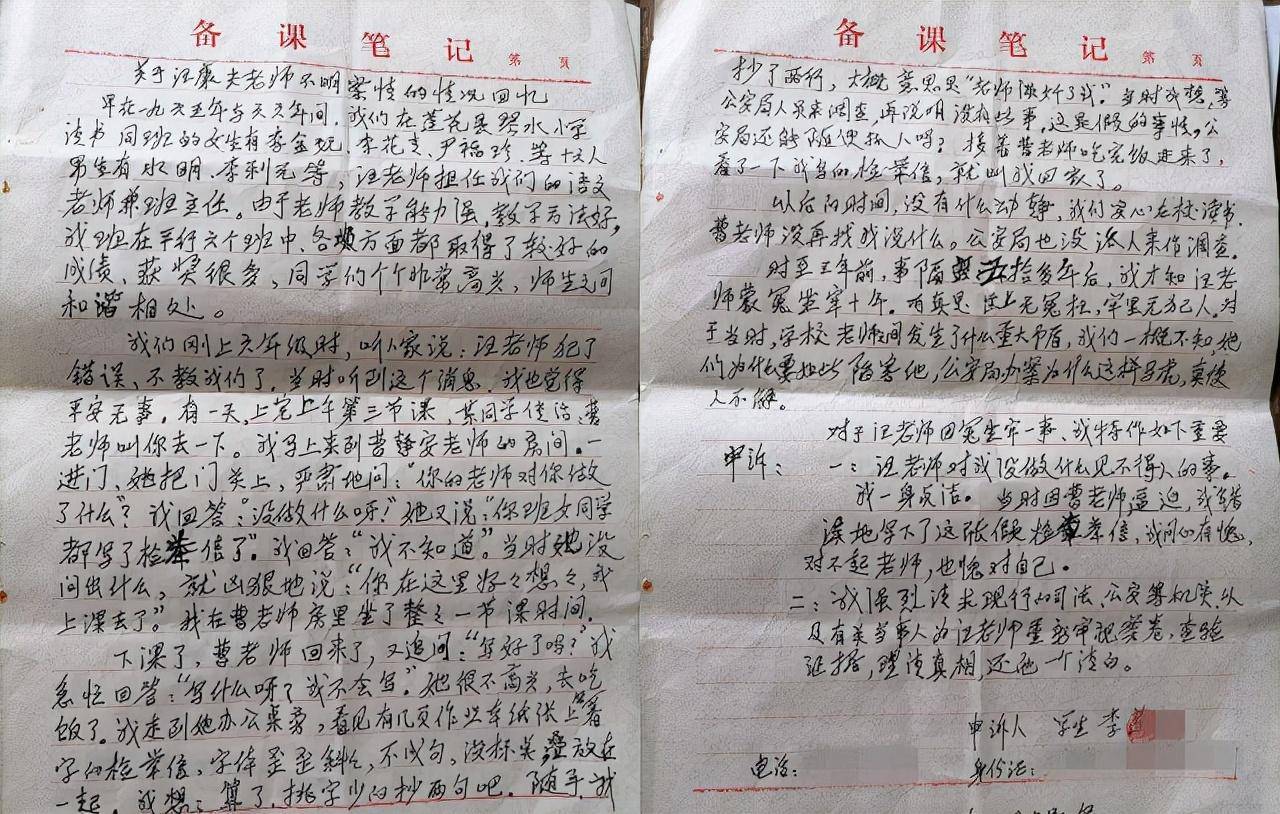 备课笔记
第 页
关于汪康夫老师不明案情的情况回忆
早在一九六五年与六六年间,我们在莲花县琴水小学
读书 同班的女生有李金玩、李花支、尹福珍、等十六人
男生有 水明、李利元等,汪老师担任我们的语文
老师兼班主任。由于老师教学能力强,教学方法好,
我班在平行六个班中、各项方面都取得了较好的
成绩、获奖很多,同学们个个非常高兴,师生之间
和谐相处。
我们刚上六年级时,听人家说:汪老师犯了
错误、不教我们了,当时听到这个消息,我也觉得
平安无事。有一天,上完上午第三节课,某同学传话:曹
老师叫你去一下。我马上来到曹静安老师的房间。一
进门、她把门关上,严肃地问:“你的老师对你做
了什么”?我回答:“没做什么呀!”她又说:“你班女同学
都写了检举信了”。我回答:“我不知道”。当时她没
问出什么,就凶狠地说:“你在这里好々想々,我
上课去了”。我在曹老师房里坐了整々一节课时间。
下课了,曹老师回来了,又追问:“写好了吗?”我
急忙回答:“写什么呀?我不会写”。她很不高兴,去吃
饭了。我走到她办公桌旁,看见有几页作业本纸张上署
字的检举信,字体歪歪斜々,不成句,没标点,叠放在
一起。我想:算了,挑字少的抄两句吧。随手我
备课笔记
第 页
抄了两行,大概意思是“老师做奸了我”。当时我想,等
公安局人员来调查,再说明没有此事,这是假的事情。公
安局还能随便抓人吗?接着曹老师吃完饭进来了,
看了一下我写的检举信,就叫我回家了。
以后的时间,没有什么动静,我们安心在校读书。
曹老师没再找我说什么。公安局也没派人来作调查。
时至三年前,事隔五拾多年后,我才知汪老
师蒙冤坐牢十年。有真是 世上无冤枉,牢里无犯人。对
于当时,学校老师间发生了什么重大矛盾,我们一概不知,她
们为什么要如此陷害他,公安局办案为什么这样马虎,真使
人不解。
对于汪老师因冤坐牢一事、我特作如下重要
申诉: 一:汪老师对我没做什么见不得人的事。
我一身贞洁。当时因曹老师逼迫,我错
误地写下了这张假检举信,我问心有愧,
对不起老师,也愧对自己。
二:我强烈请求现行的司法、公安等机关,以
及有关当事人为汪老师重新审视案卷,查验
证据,理清真相,还他一个清白。
申诉人 学生 李
电话: 身份证: